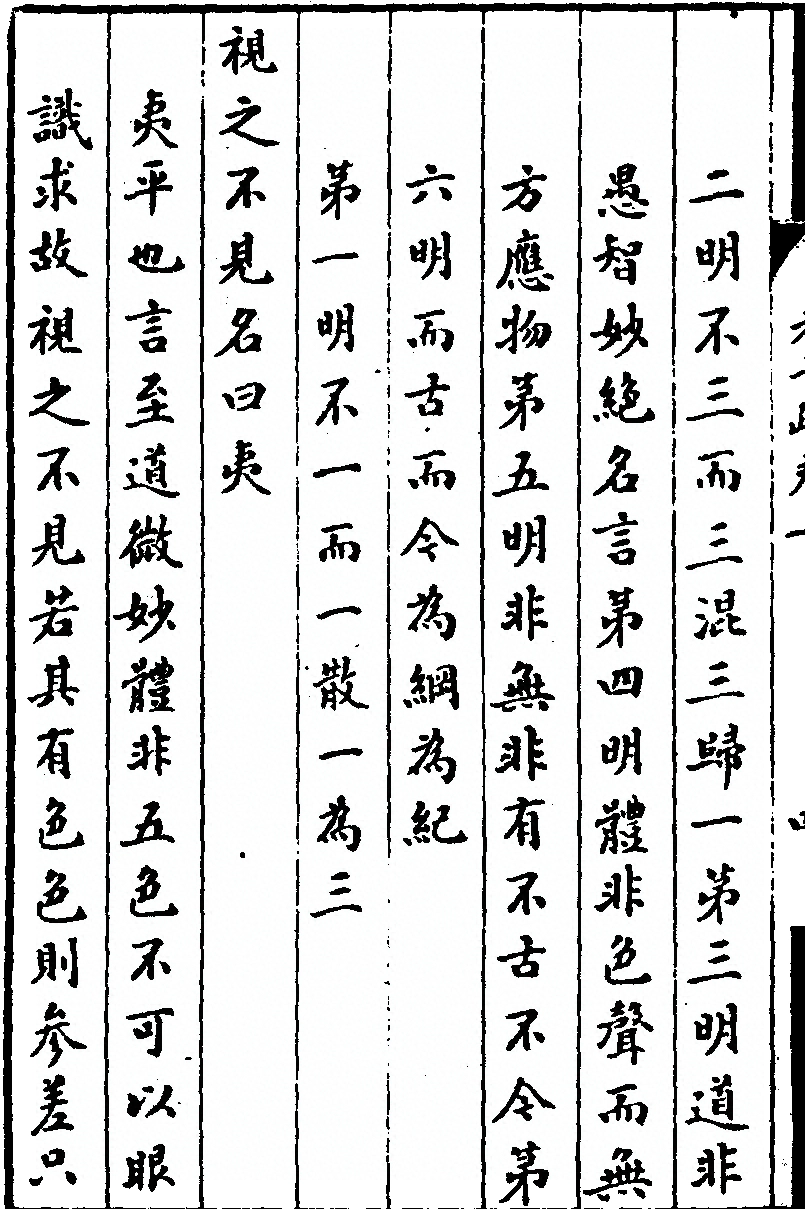 二明不三而三混三歸一第三明道非
愚智妙絶名言第四明體非色聲而無
方應物第五明非無非有不古不今第
六明而古而今為綱為紀
第一明不一而一散一為三
視之不見名曰夷
夷平也言至道微妙體非五色不可以眼
識求故視之不見若其有色色則参差只